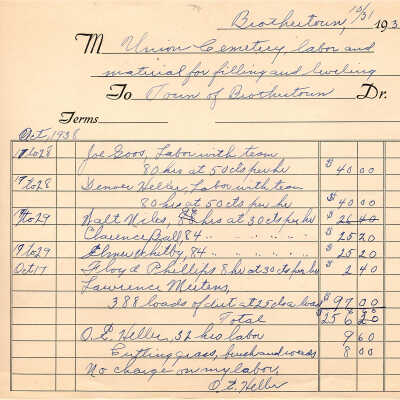 Brothertown, 10/31 193
M Union Cemetery, labor and
material for filling and leveling
To Town of Brothertown Dr.
Terms
Oct, 1938
17 to 28 Joe Goos, Labor with team
80 hrs at 50 cts per hr $ 40 00
17 to 28 Denver Heller, Labor with team
80 hrs at 50 cts per hr $ 40 00
to 29 Walt Niles, 88 hrs at 30 cts per hr $ 26 40
Clarence Ball, 84 " " " " " $ 25 20
19 to 29 Elmer Whitby, 84 " " " " " $ 25 20
Oct 17 Floyd Phillips 8 hrs at 30 cts per hr $ 2 40
Lawrence Mertens,
388 loads of dirt at 25 cts a load $ 97 00
Total $ 256 20
O. E. Heller, 32 hrs labor 9 60
Cutting grass, brush and weeds 8 00
No charge on my labor,
O. E. Heller